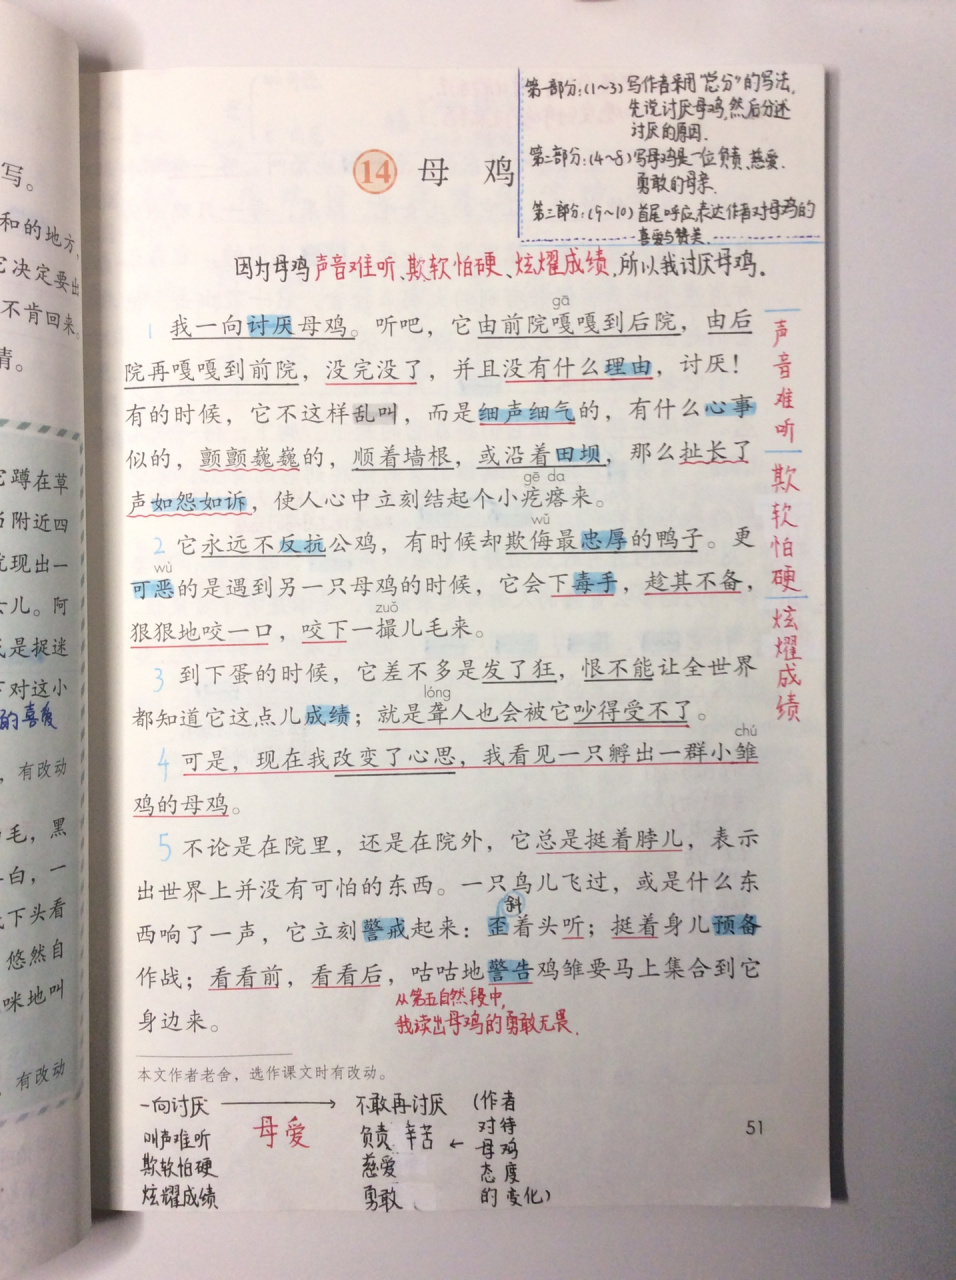 写。
和的地方,
它决定要出
不肯回来,
情。
它蹲在草
当附近四
就现出一
女儿。阿
是捉迷
下对这小
的喜爱
,有改动
毛,黑
白,一
下头看
悠然自
咪地叫
有改动
第一部分:(1~3)写作者采用“总分”的写法,
先说讨厌母鸡,然后分述
讨厌的原因.
第二部分:(4~8)写母鸡是一位负责、慈爱、
勇敢的母亲.
第三部分:(9~10)首尾呼应,表达作者对母鸡的
喜爱与赞美.
14 母 鸡
因为母鸡声音难听、欺软怕硬、炫耀成绩,所以我讨厌母鸡.
gā
1 我一向讨厌母鸡。听吧,它由前院嘎嘎到后院,由后
院再嘎嘎到前院,没完没了,并且没有什么理由,讨厌!
有的时候,它不这样乱叫,而是细声细气的,有什么心事
似的,颤颤巍巍的,顺着墙根,或沿着田坝,那么扯长了
gē da
声如怨如诉,使人心中立刻结起个小疙瘩来。
wǔ
2 它永远不反抗公鸡,有时候却欺侮最忠厚的鸭子。更
wù
可恶的是遇到另一只母鸡的时候,它会下毒手,趁其不备,
zuǒ
狠狠地咬一口,咬下一撮儿毛来。
3 到下蛋的时候,它差不多是发了狂,恨不能让全世界
lóng
都知道它这点儿成绩;就是聋人也会被它吵得受不了。
chú
4 可是,现在我改变了心思,我看见一只孵出一群小雏
鸡的母鸡。
5 不论是在院里,还是在院外,它总是挺着脖儿,表示
出世界上并没有可怕的东西。一只鸟儿飞过,或是什么东
斜
西响了一声,它立刻警戒起来:歪着头听;挺着身儿预备
作战;看看前,看看后,咕咕地警告鸡雏要马上集合到它
身边来。
从第五自然段中,
我读出母鸡的勇敢无畏.
声音难听
欺软怕硬
炫耀成绩
本文作者老舍,选作课文时有改动。
一向讨厌
叫声难听
欺软怕硬
炫耀成绩
母爱
不敢再讨厌
负责 辛苦
慈爱
勇敢
(作者
对待
母鸡
态度
的变化)
51